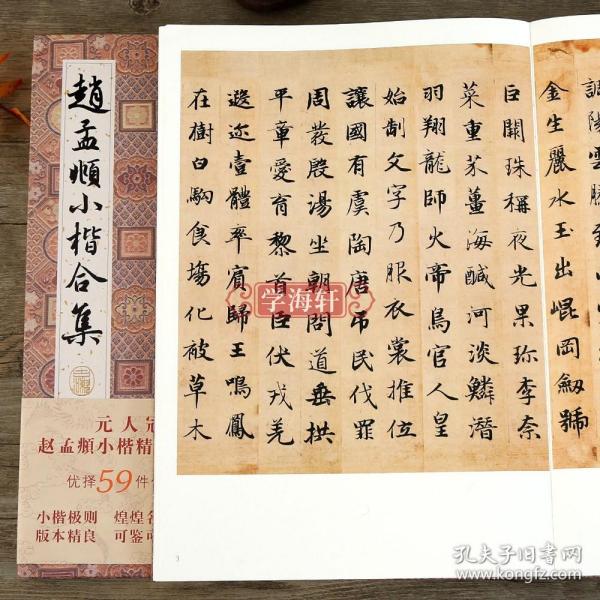 趙孟頫小楷合集
元人冠
赵孟頫小楷精
优择59件
小楷极则 煌煌
版本精良 可鉴
調陽雲騰
金生麗水玉出崐岡劒號
巨闕珠稱夜光果珎李柰
菜重芥薑海醎河淡鱗潛
羽翔龍師火帝鳥官人皇
始制文字乃服衣裳推位
讓國有虞陶唐弔民伐罪
周發殷湯坐朝問道垂拱
平章愛育黎首臣伏戎羌
遐迩壹體率賓歸王鳴鳳
在樹白駒食場化被草木
学海轩
3
孔夫子旧书网
www.kongfz.com